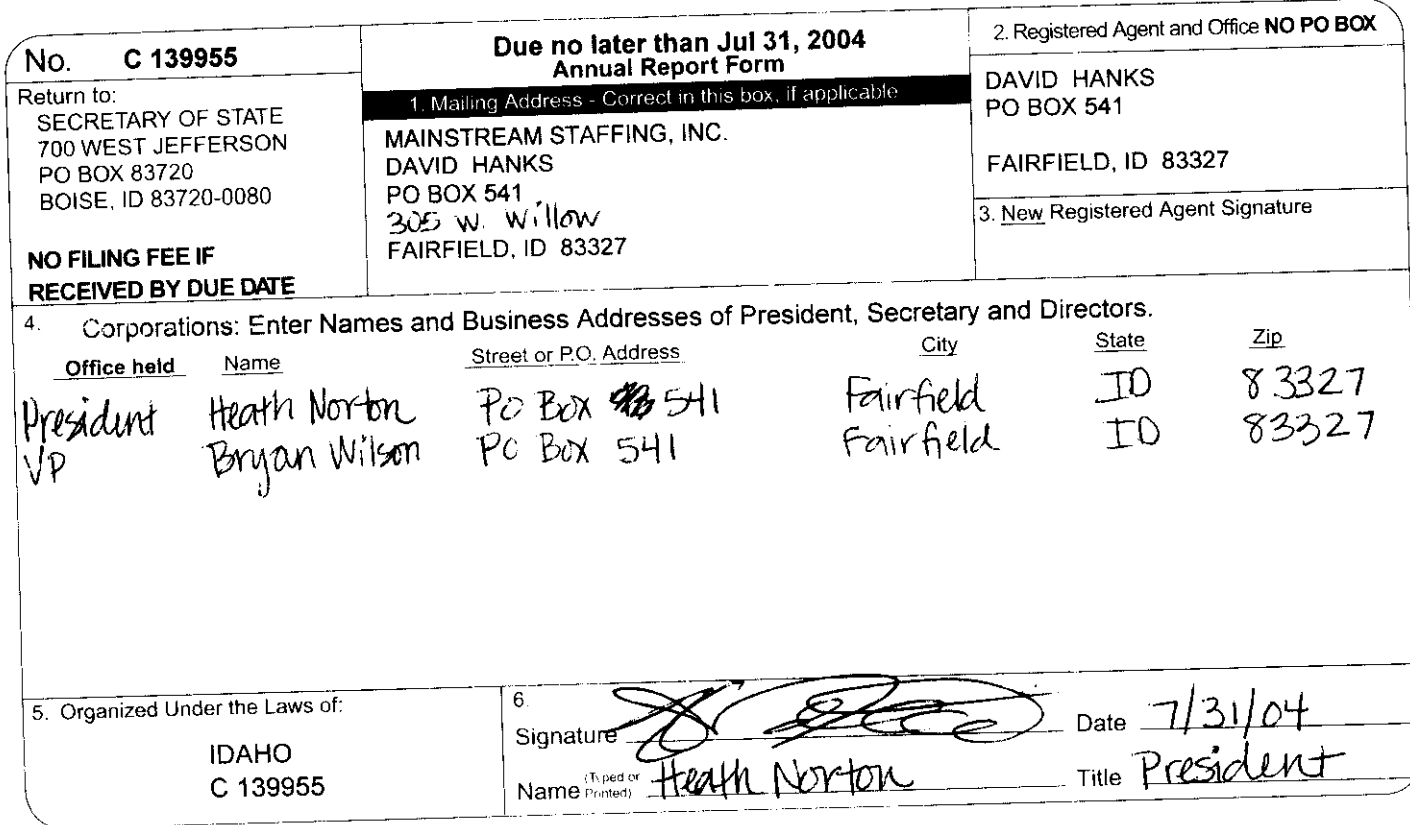 No. C 139955
Return to:
SECRETARY OF STATE
700 WEST JEFFERSON
PO BOX 83720
BOISE, ID 83720-0080
NO FILING FEE IF
RECEIVED BY DUE DATE
Due no later than Jul 31, 2004
Annual Report Form
1. Mailing Address - Correct in this box, if applicable
MAINSTREAM STAFFING, INC.
DAVID HANKS
PO BOX 541
305 W. Willow
FAIRFIELD, ID 83327
2. Registered Agent and Office NO PO BOX
DAVID HANKS
PO BOX 541
FAIRFIELD, ID 83327
3. New Registered Agent Signature
4. Corporations: Enter Names and Business Addresses of President, Secretary and Directors.
Office held Name Street or P.O. Address City State Zip
President Heath Norton PO Box 541 Fairfield ID 83327
VP Bryan Wilson PO Box 541 Fairfield ID 83327
5. Organized Under the Laws of:
IDAHO
C 139955
6.
Signature Date 7/31/04
Name (Typed or Printed) Heath Norton Title President